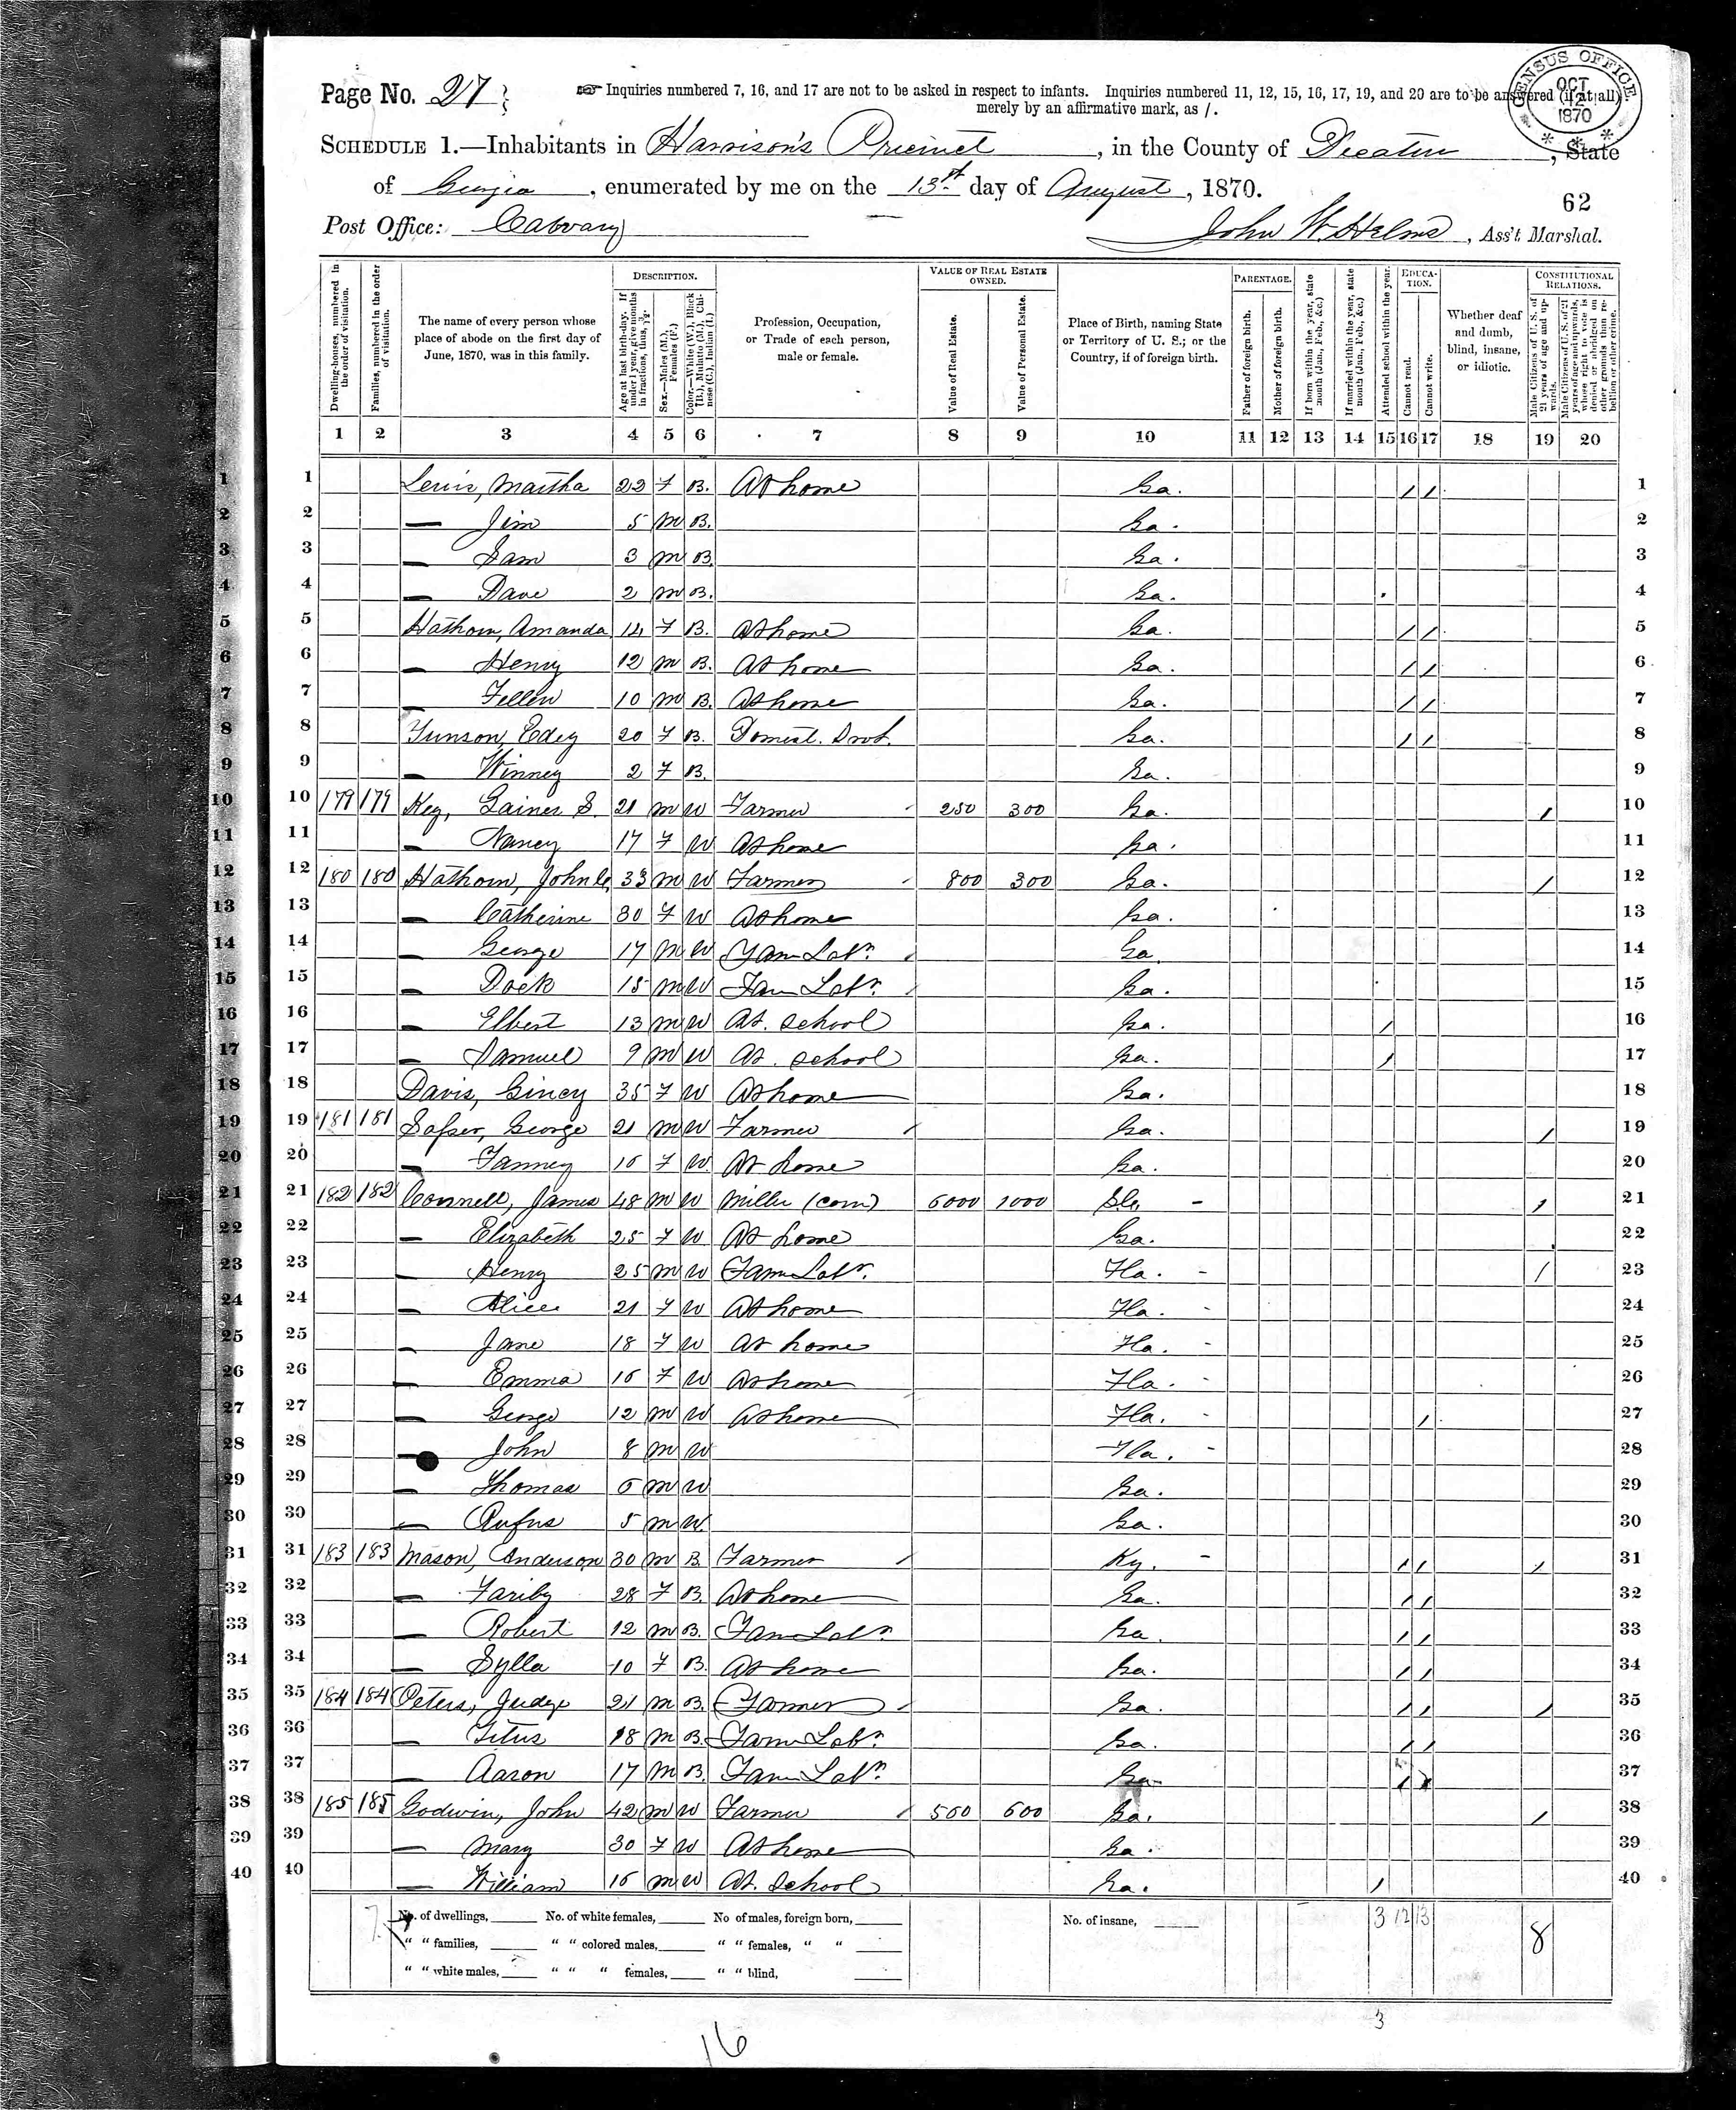 Page No. 27
Inquiries numbered 7, 16, and 17 are not to be asked in respect to infants. Inquiries numbered 11, 12, 15, 16, 17, 19, and 20 are to be answered (if at all)
merely by an affirmative mark, as /.
CENSUS OFFICE
OCT
12
1870
SCHEDULE 1.—Inhabitants in Harrison's Precinct, in the County of Decatur, State
of Georgia, enumerated by me on the 13st day of August, 1870.
62
Post Office: Calvary
John W. Helms, Ass't Marshal.
Dwelling-houses, numbered in the order of visitation.
Families, numbered in the order of visitation.
The name of every person whose place of abode on the first day of June, 1870, was in this family.
DESCRIPTION.
Age at last birth-day. If under 1 year, give months in fractions, thus, 3/12.
Sex.—Males (M.), Females (F.)
Color.—White (W.), Black (B.), Mulatto (M.), Chinese (C.), Indian (I.)
Profession, Occupation, or Trade of each person, male or female.
VALUE OF REAL ESTATE OWNED.
Value of Real Estate.
Value of Personal Estate.
Place of Birth, naming State or Territory of U. S.; or the Country, if of foreign birth.
PARENTAGE.
Father of foreign birth.
Mother of foreign birth.
If born within the year, state month (Jan., Feb., &c.)
If married within the year, state month (Jan., Feb., &c.)
Attended school within the year.
EDUCATION.
Cannot read.
Cannot write.
Whether deaf and dumb, blind, insane, or idiotic.
CONSTITUTIONAL RELATIONS.
Male Citizens of U. S. of 21 years of age and upwards.
Male Citizens of U. S. of 21 years of age and upwards, whose right to vote is denied or abridged on other grounds than rebellion or other crime.
1 2 3 4 5 6 7 8 9 10 11 12 13 14 15 16 17 18 19 20
1 Lewis, Martha 22 F B. At home Ga. / / 1
2 — Jim 5 M B. Ga. 2
3 — Sam 3 M B. Ga. 3
4 — Dave 2 M B. Ga. 4
5 Hathorn, Amanda 14 F B. At home Ga. / / 5
6 — Henry 12 M B. At home Ga. / / 6
7 — 10 M B. At home Ga. / / 7
8 Edey 20 F B. Domest. Ga. / / 8
9 — Winney 2 F B. Ga. 9
10 179 179 Key, Gaines S. 21 M W Farmer 250 300 Ga. / 10
11 — Nancy 17 F W At home Ga. 11
12 180 180 Hathorn, John C. 33 M W Farmer 800 300 Ga. / 12
13 — Catherine 30 F W At home Ga. 13
14 — George 17 M W Farm Labr. Ga. 14
15 — Dock 15 M W Farm Labr. Ga. 15
16 — Elbert 13 M W At. School Ga. / 16
17 — Samuel 9 M W At. School Ga. / 17
18 Davis, Giney 35 F W At home Ga. 18
19 181 181 Sasser, George 21 M W Farmer Ga. / 19
20 — Fanney 16 F W At home Ga. 20
21 182 182 Connell, James 48 M W Miller (corn) 6000 1000 / 21
22 — Elizabeth 25 F W At home Ga. 22
23 — Henry 25 M W Farm Labr. Fla. / 23
24 — Alice 21 F W At home Fla. 24
25 — Jane 18 F W At home Fla. 25
26 — Emma 16 F W At home Fla. 26
27 — George 12 M W At home Fla. / 27
28 — John 8 M W Fla. 28
29 — Thomas 6 M W Ga. 29
30 — Rufus 5 M W Ga. 30
31 183 183 Mason, Anderson 30 M B Farmer Ky. / / / 31
32 — Fariby 28 F B. At home Ga. / / 32
33 — Robert 12 M B. Farm Labr. Ga. / / 33
34 — Sylla 10 F B. At home Ga. / / 34
35 184 184 Peters, Judge 21 M B. Farmer Ga. / / / 35
36 — Titus 18 M B. Farm Labr. Ga. / / 36
37 — Aaron 17 M B. Farm Labr. Ga. / / 37
38 185 185 Godwin, John 42 M W Farmer 500 600 Ga. / 38
39 — Mary 30 F W At home Ga. 39
40 — William 16 M W At. School Ga. / 40
No. of dwellings, No. of white females, No of males, foreign born, No. of insane, 3 12 13 8
" " families, " " colored males, " " females, " "
" " white males, " " " females, " " blind,
3
16